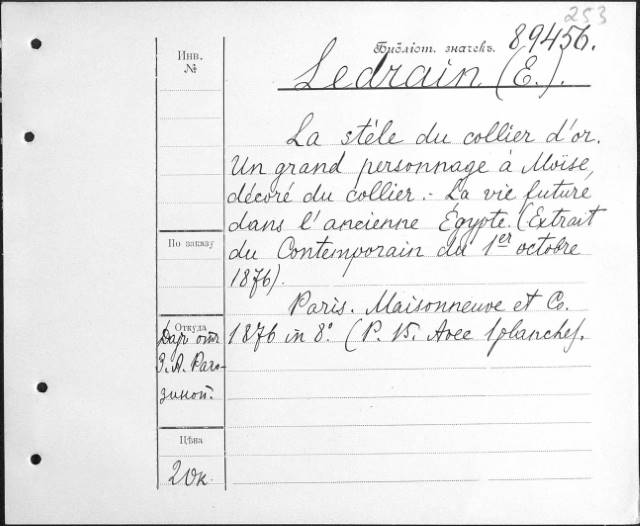 253
Инв.
№
Библіот. значекъ. 89456.
Ledrain (E.).
La stéle du collier d'or.
Un grand personnage à Moïse,
décoré du collier. - La vie future
dans l'ancienne Égypte. (Extrait
du Contemporain du 1er octobre
1876).
Paris. Maisonneuve et Co.
1876 in 8°. (P. 15. Avec 1 planche).
По заказу
Откуда
Даръ отъ
З. А. Раго-
зиной.
Цѣна
20к.